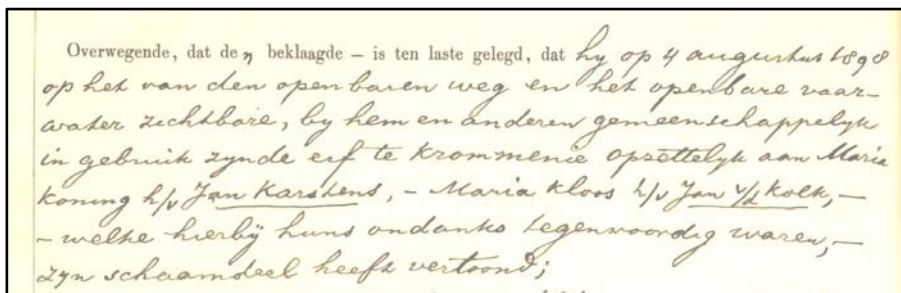 Overwegende, dat den beklaagde – is ten laste gelegd, dat hy op 4 augustus 1898
op het van den openbaren weg en het openbare vaar-
water zichtbare, by hem en anderen gemeenschappelyk
in gebruik zynde erf te Krommenie opzettelyk aan Maria
Koning h/v Jan Karstens, – Maria Kloos h/v Jan v/d Kolk, –
– welke hierby huns ondanks tegenwoordig waren, –
zyn schaamdeel heeft vertoond;